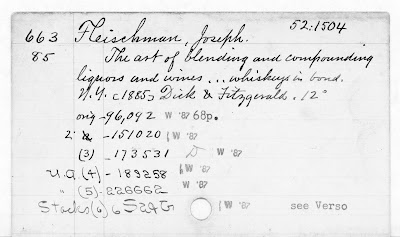 663 Fleischman, Joseph. 52:1504
85 The art of blending and compounding
liquors and wines ... whiskeys in bond.
N.Y. c1885, Dick & Fitzgerald. 12°
orig - 96,092 W '87 68p.
2: - 151020 W '87
(3) - 173531 W '87
U.G. (4) - 189258 W '87
" (5) - 226662 W '87
Stacks (6) W '87 see Verso